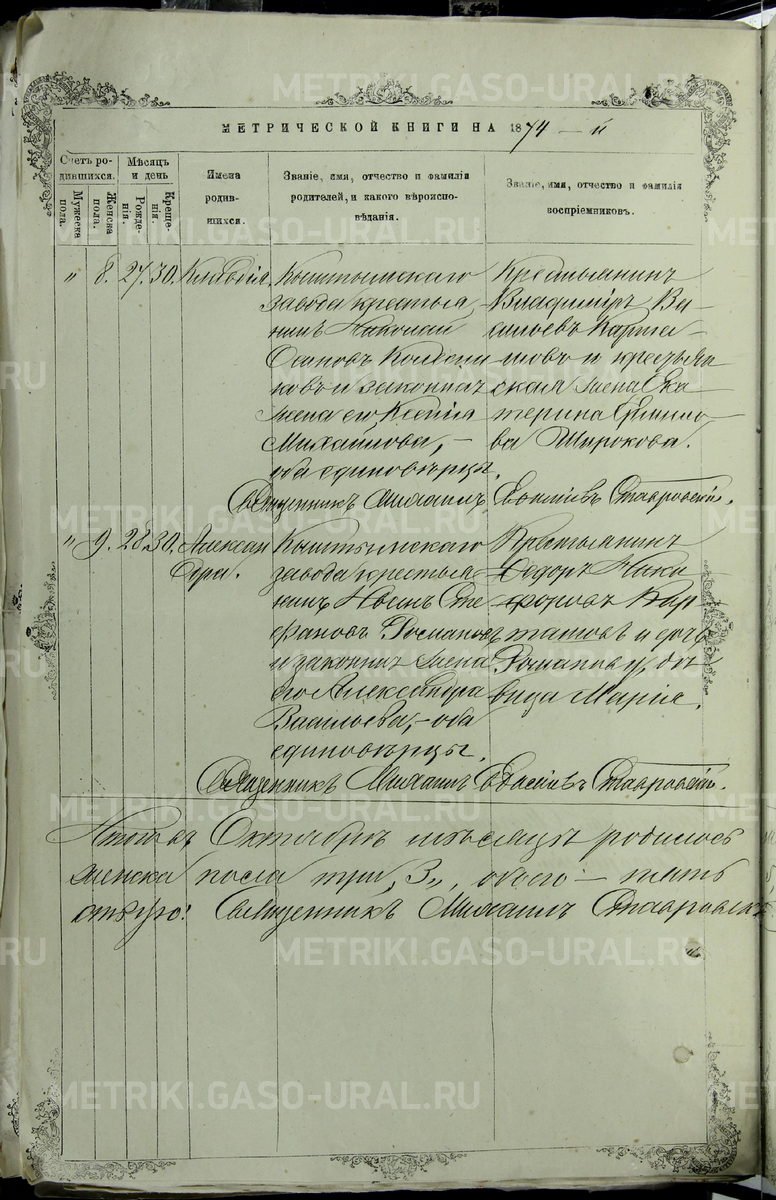 METRIKI.GASO-URAL.RU
МЕТРИЧЕСКОЙ КНИГИ НА 1874-й
Счетъ родившихся.
Мужеска пола.
Женска пола.
Мѣсяцъ и день
Рожденія.
Крещенія.
Имена родившихся.
Званіе, имя, отчество и фамилія родителей, и какого вѣроисповѣданія.
Званіе, имя, отчество и фамилія воспріемниковъ.
" 8. 27. 30. Клавдія.
Кыштымскаго
завода крестья
нинъ Николай
Осиповъ Колесни
ковъ и законная
жена его Ксенія
Михайлова, –
оба единовѣрцы.
Крестьянинъ
Владиміръ Ва-
сильевъ
и крестьян
ская жена Ека
терина
ва Широкова.
Священникъ Михаилъ Ставровскій.
" 9. 28. 30. Алексан
дра.
Кыштымскаго
завода крестья
нинъ Сте
фановъ Романовъ
и законная жена
его Александра
Васильева, – оба
единовѣрцы.
Крестьянинъ
Ѳедоръ Ники
форовъ
и дочь
Романову, дѣ
вица Марія.
Священникъ Михаилъ Ставровскій.
Итого въ Октябрѣ мѣсяцѣ родилось
женска пола три, 3", обоего – пять
Священникъ Михаилъ Ставровскій